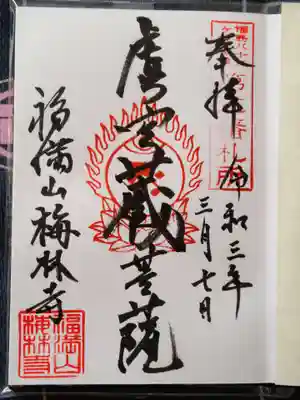 奉拝
令和三年
三月七日
虚空蔵菩薩
福満山梅林寺
福満山
梅林寺